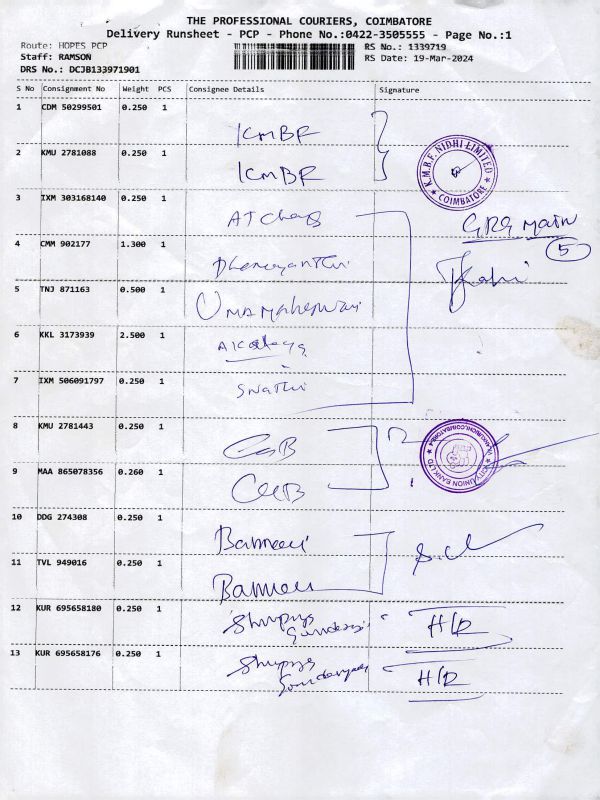 THE PROFESSIONAL COURIERS, COIMBATORE
Delivery Runsheet - PCP - Phone No.:0422-3505555 - Page No.:1
Route: HOPES PCP
RS No.: 1339719
Staff: RAMSON
RS Date: 19-Mar-2024
DRS No.: DCJB133971901
S No Consignment No Weight PCS Consignee Details Signature
1 CDM 50299501 0.250 1
KMBF
2 KMU 2781088 0.250 1
KMBF
K.M.B.F. NIDHI LIMITED
COIMBATORE
3 IXM 303168140 0.250 1
GRG MAIN
5
4 CMM 902177 1.300 1
Dhamayanthi
5 TNJ 871163 0.500 1
Umamaheswari
6 KKL 3173939 2.500 1
7 IXM 506091797 0.250 1
Swathi
8 KMU 2781443 0.250 1
CUB
CITY UNION BANK LTD
9 MAA 865078356 0.260 1
CUB
10 DDG 274308 0.250 1
11 TVL 949016 0.250 1
12 KUR 695658180 0.250 1
H/R
13 KUR 695658176 0.250 1
H/R